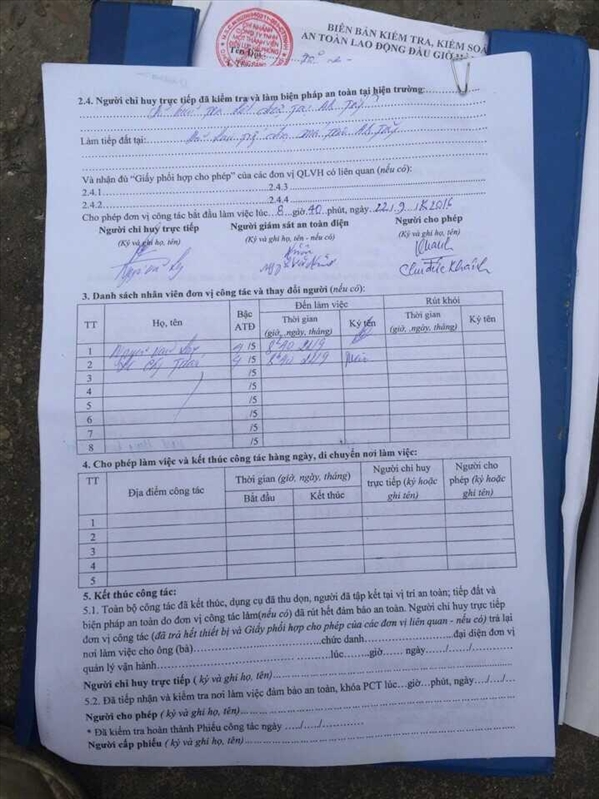 BIÊN BẢN KIỂM TRA, KIỂM SOÁ
AN TOÀN LAO ĐỘNG ĐẦU GIỜ
CHI NHÁNH
CÔNG TY TNHH
MỘT THÀNH VIÊN
2.4. Người chỉ huy trực tiếp đã kiểm tra và làm biện pháp an toàn tại hiện trường:
Làm tiếp đất tại:
Và nhận đủ “Giấy phối hợp cho phép” của các đơn vị QLVH có liên quan (nếu có):
2.4.1 2.4.3
2.4.2 2.4.4
Cho phép đơn vị công tác bắt đầu làm việc lúc...8...giờ.40...phút, ngày.22.9.2016
Người chỉ huy trực tiếp Người giám sát an toàn điện Người cho phép
(Ký và ghi họ, tên) (Ký và ghi họ, tên - nếu có) (Ký và ghi họ, tên)
Khanh
Chu Đức Khánh
3. Danh sách nhân viên đơn vị công tác và thay đổi người (nếu có):
TT Họ, tên Bậc ATĐ Đến làm việc Rút khỏi
Thời gian (giờ, ngày, tháng) Ký tên Thời gian (giờ, ngày, tháng) Ký tên
1 4/5
2 4/5
3 /5
4 /5
5 /5
6 /5
7 /5
8 /5
4. Cho phép làm việc và kết thúc công tác hàng ngày, di chuyển nơi làm việc:
TT Địa điểm công tác Thời gian (giờ, ngày, tháng) Người chỉ huy trực tiếp (ký hoặc ghi tên) Người cho phép (ký hoặc ghi tên)
Bắt đầu Kết thúc
1
2
3
4
5
5. Kết thúc công tác:
5.1. Toàn bộ công tác đã kết thúc, dụng cụ đã thu dọn, người đã tập kết tại vị trí an toàn; tiếp đất và
biện pháp an toàn do đơn vị công tác làm(nếu có) đã rút hết đảm bảo an toàn. Người chỉ huy trực tiếp
đơn vị công tác (đã trả hết thiết bị và Giấy phối hợp cho phép của các đơn vị liên quan - nếu có) trả lại
nơi làm việc cho ông (bà)...chức danh...đại diện đơn vị
quản lý vận hành...lúc...giờ... ngày..../..../....
Người chỉ huy trực tiếp ( ký và ghi họ, tên)
5.2. Đã tiếp nhận và kiểm tra nơi làm việc đảm bảo an toàn, khóa PCT lúc...giờ...phút, ngày..../..../....
Người cho phép ( ký và ghi họ, tên)
* Đã kiểm tra hoàn thành Phiếu công tác ngày ...../...../..........
Người cấp phiếu ( ký và ghi họ, tên)